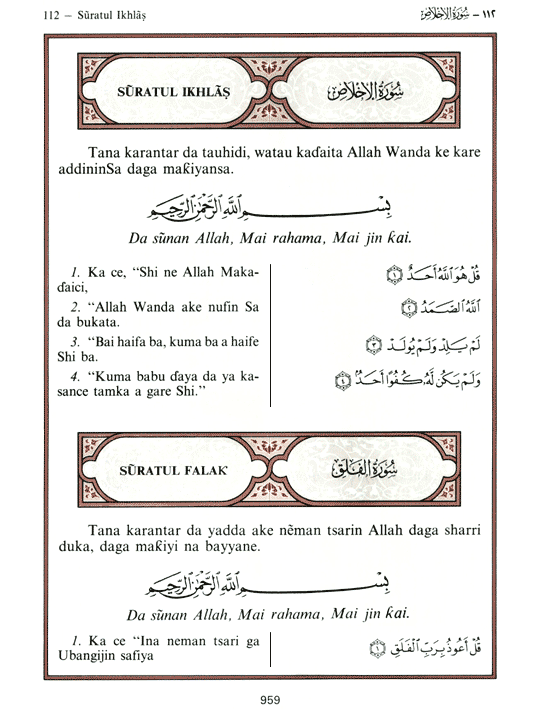 112 – Sũratul Ikhlãṣ
١١٢ – سُورَةُ الإِخْلَاص
SŨRATUL IKHLÃṢ
سُورَةُ الإِخْلَاصِ
Tana karantar da tauhidi, watau kaɗaita Allah Wanda ke kare
addininSa daga maƙiyansa.
بِسْمِ ٱللَّهِ ٱلرَّحْمَٰنِ ٱلرَّحِيمِ
Da sũnan Allah, Mai rahama, Mai jin ƙai.
1. Ka ce, “Shi ne Allah Maka-
ɗaici,
2. “Allah Wanda ake nufin Sa
da bukata.
3. “Bai haifa ba, kuma ba a haife
Shi ba.
4. “Kuma babu ɗaya da ya ka-
sance tamka a gare Shi.”
قُلْ هُوَ ٱللَّهُ أَحَدٌ ١
ٱللَّهُ ٱلصَّمَدُ ٢
لَمْ يَلِدْ وَلَمْ يُولَدْ ٣
وَلَمْ يَكُن لَّهُۥ كُفُوًا أَحَدٌۢ ٤
SŨRATUL FALAƘ
سُورَةُ الفَلَقِ
Tana karantar da yadda ake nẽman tsarin Allah daga sharri
duka, daga maƙiyi na bayyane.
بِسْمِ ٱللَّهِ ٱلرَّحْمَٰنِ ٱلرَّحِيمِ
Da sũnan Allah, Mai rahama, Mai jin ƙai.
1. Ka ce “Ina neman tsari ga
Ubangijin safiya
قُلْ أَعُوذُ بِرَبِّ ٱلْفَلَقِ ١
959